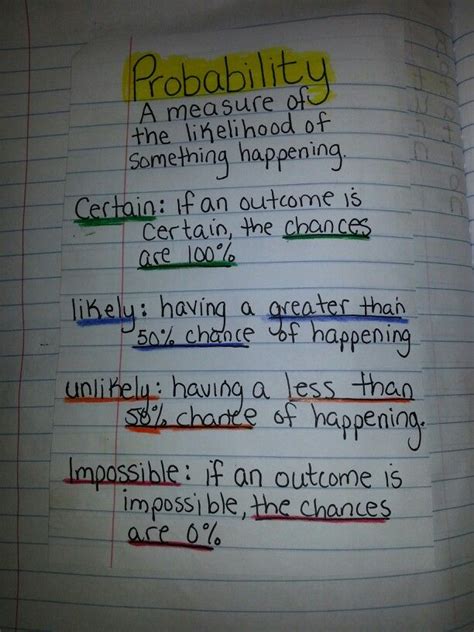 Probability
A measure of
the likelihood of
something happening.
Certain: if an outcome is
certain, the chances
are 100%
likely: having a greater than
50% chance of happening
unlikely: having a less than
50% chance of happening.
Impossible: if an outcome is
impossible, the chances
are 0%